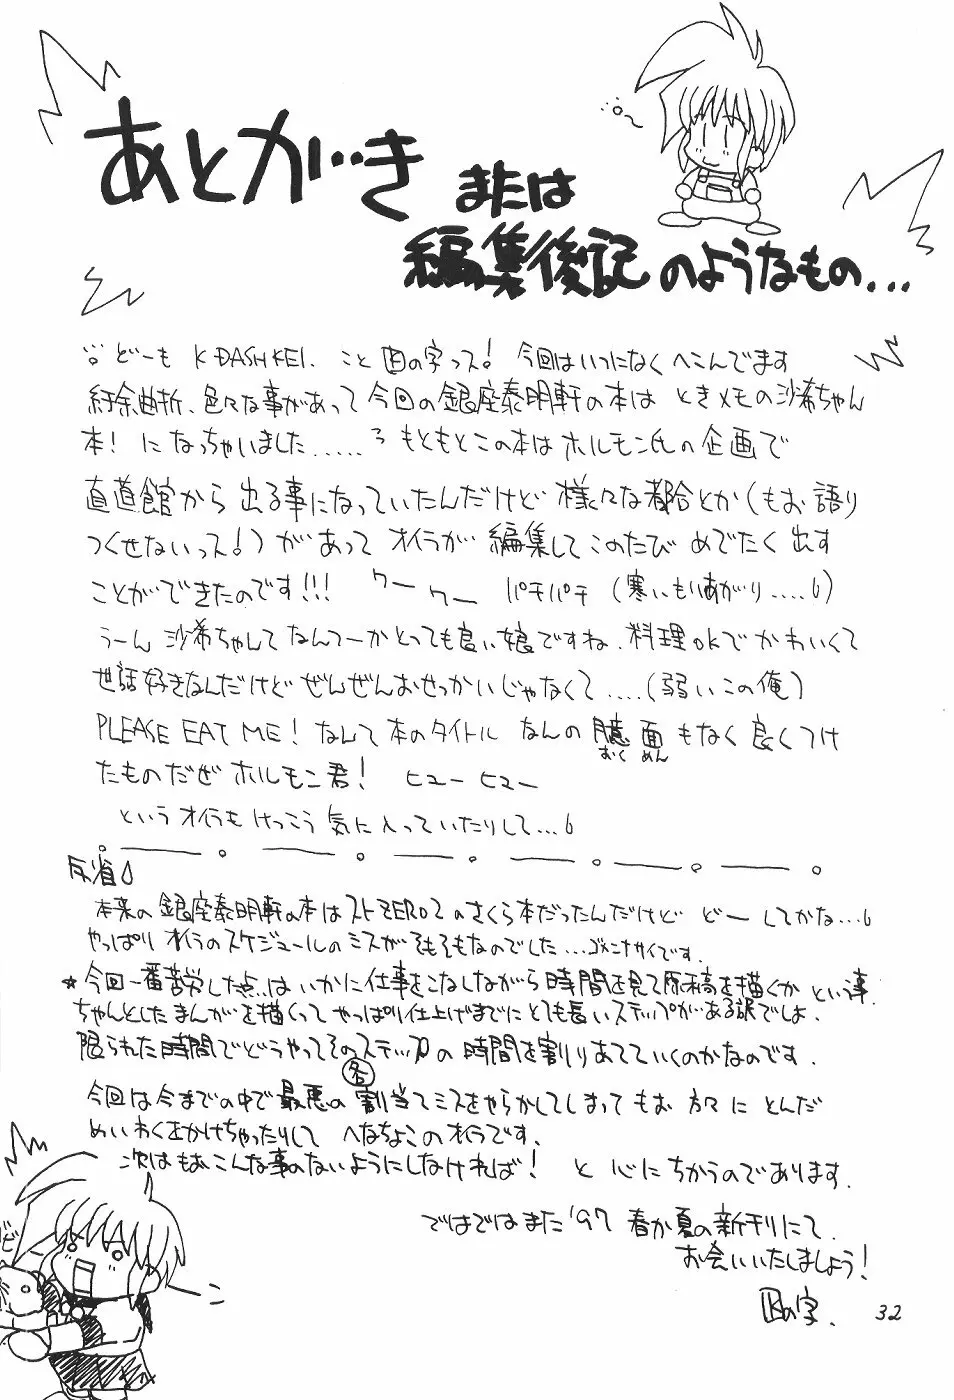 あとがき または
編集後記のようなもの...
どーも K-DASHKEI. こと 国の字っス! 今回はいつになくへこんでます
紆余曲折、色々な事があって今回の銀座泰明軒の本は ときメモの沙希ちゃん
本! になっちゃいました..... もともとこの本はホルモン氏の企画で
直道館から 出る事になっていたんだけど 様々な都合とか(もお語り
つくせないっス!)があって オイラが 編集してこのたび めでたく出す
ことができたのです!!! ワーワー パチパチ (寒いもりあがり.....)
うーん 沙希ちゃんてなんてーかとっても良い娘ですね.料理okでかわいくて
世話好きなんだけど ぜんぜんおせっかいじゃなくて....(弱いこの俺)
PLEASE EAT ME! なんて本のタイトル なんの臆面もなく良くつけ
おくめん
たものだぜ ホルモン君! ヒューヒュー
というオイラもけっこう気に入っていたりして...
反省
本来の銀座泰明軒の本はストZERO2のさくら本だったんだけど どーしてかな...
やっぱり オイラのスケジュールのミスがそもそもなのでした...ゴメンナサイです.
★今回一番苦労した点は いかに仕事をこなしながら時間を見て原稿を描くか という事.
ちゃんとしたまんがを描くって やっぱり仕上げまでにとても長いステップがある訳でしょ.
限られた時間でどうやってそのステップの時間を割りあてていくのかなのです.
各
今回は今までの中で最悪の割当てミスをやらかしてしまって もお 方々に とんだ
めいわくをかけちゃったりして へなちょこのオイラです.
次はもおこんな事のないようにしなければ! と 心にちかうのであります.
ではではまた'97 春か夏の新刊にて.
お会いいたしましょう!
の字.
32